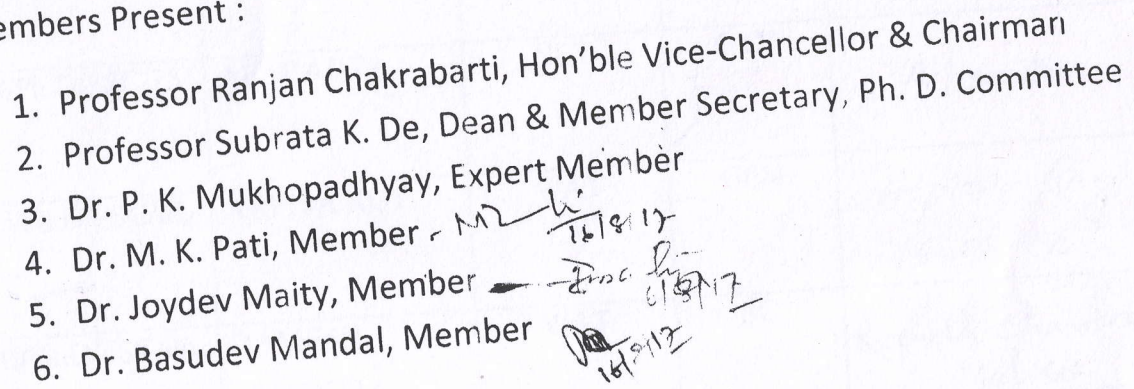 embers Present :
1. Professor Ranjan Chakrabarti, Hon'ble Vice-Chancellor & Chairman
2. Professor Subrata K. De, Dean & Member Secretary, Ph. D. Committee
3. Dr. P. K. Mukhopadhyay, Expert Member
4. Dr. M. K. Pati, Member - 16/8/17
5. Dr. Joydev Maity, Member -
6. Dr. Basudev Mandal, Member